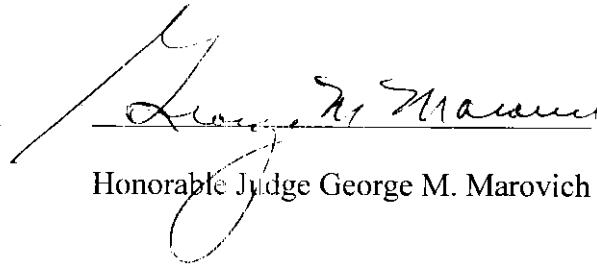 George M Marovich
Honorable Judge George M. Marovich